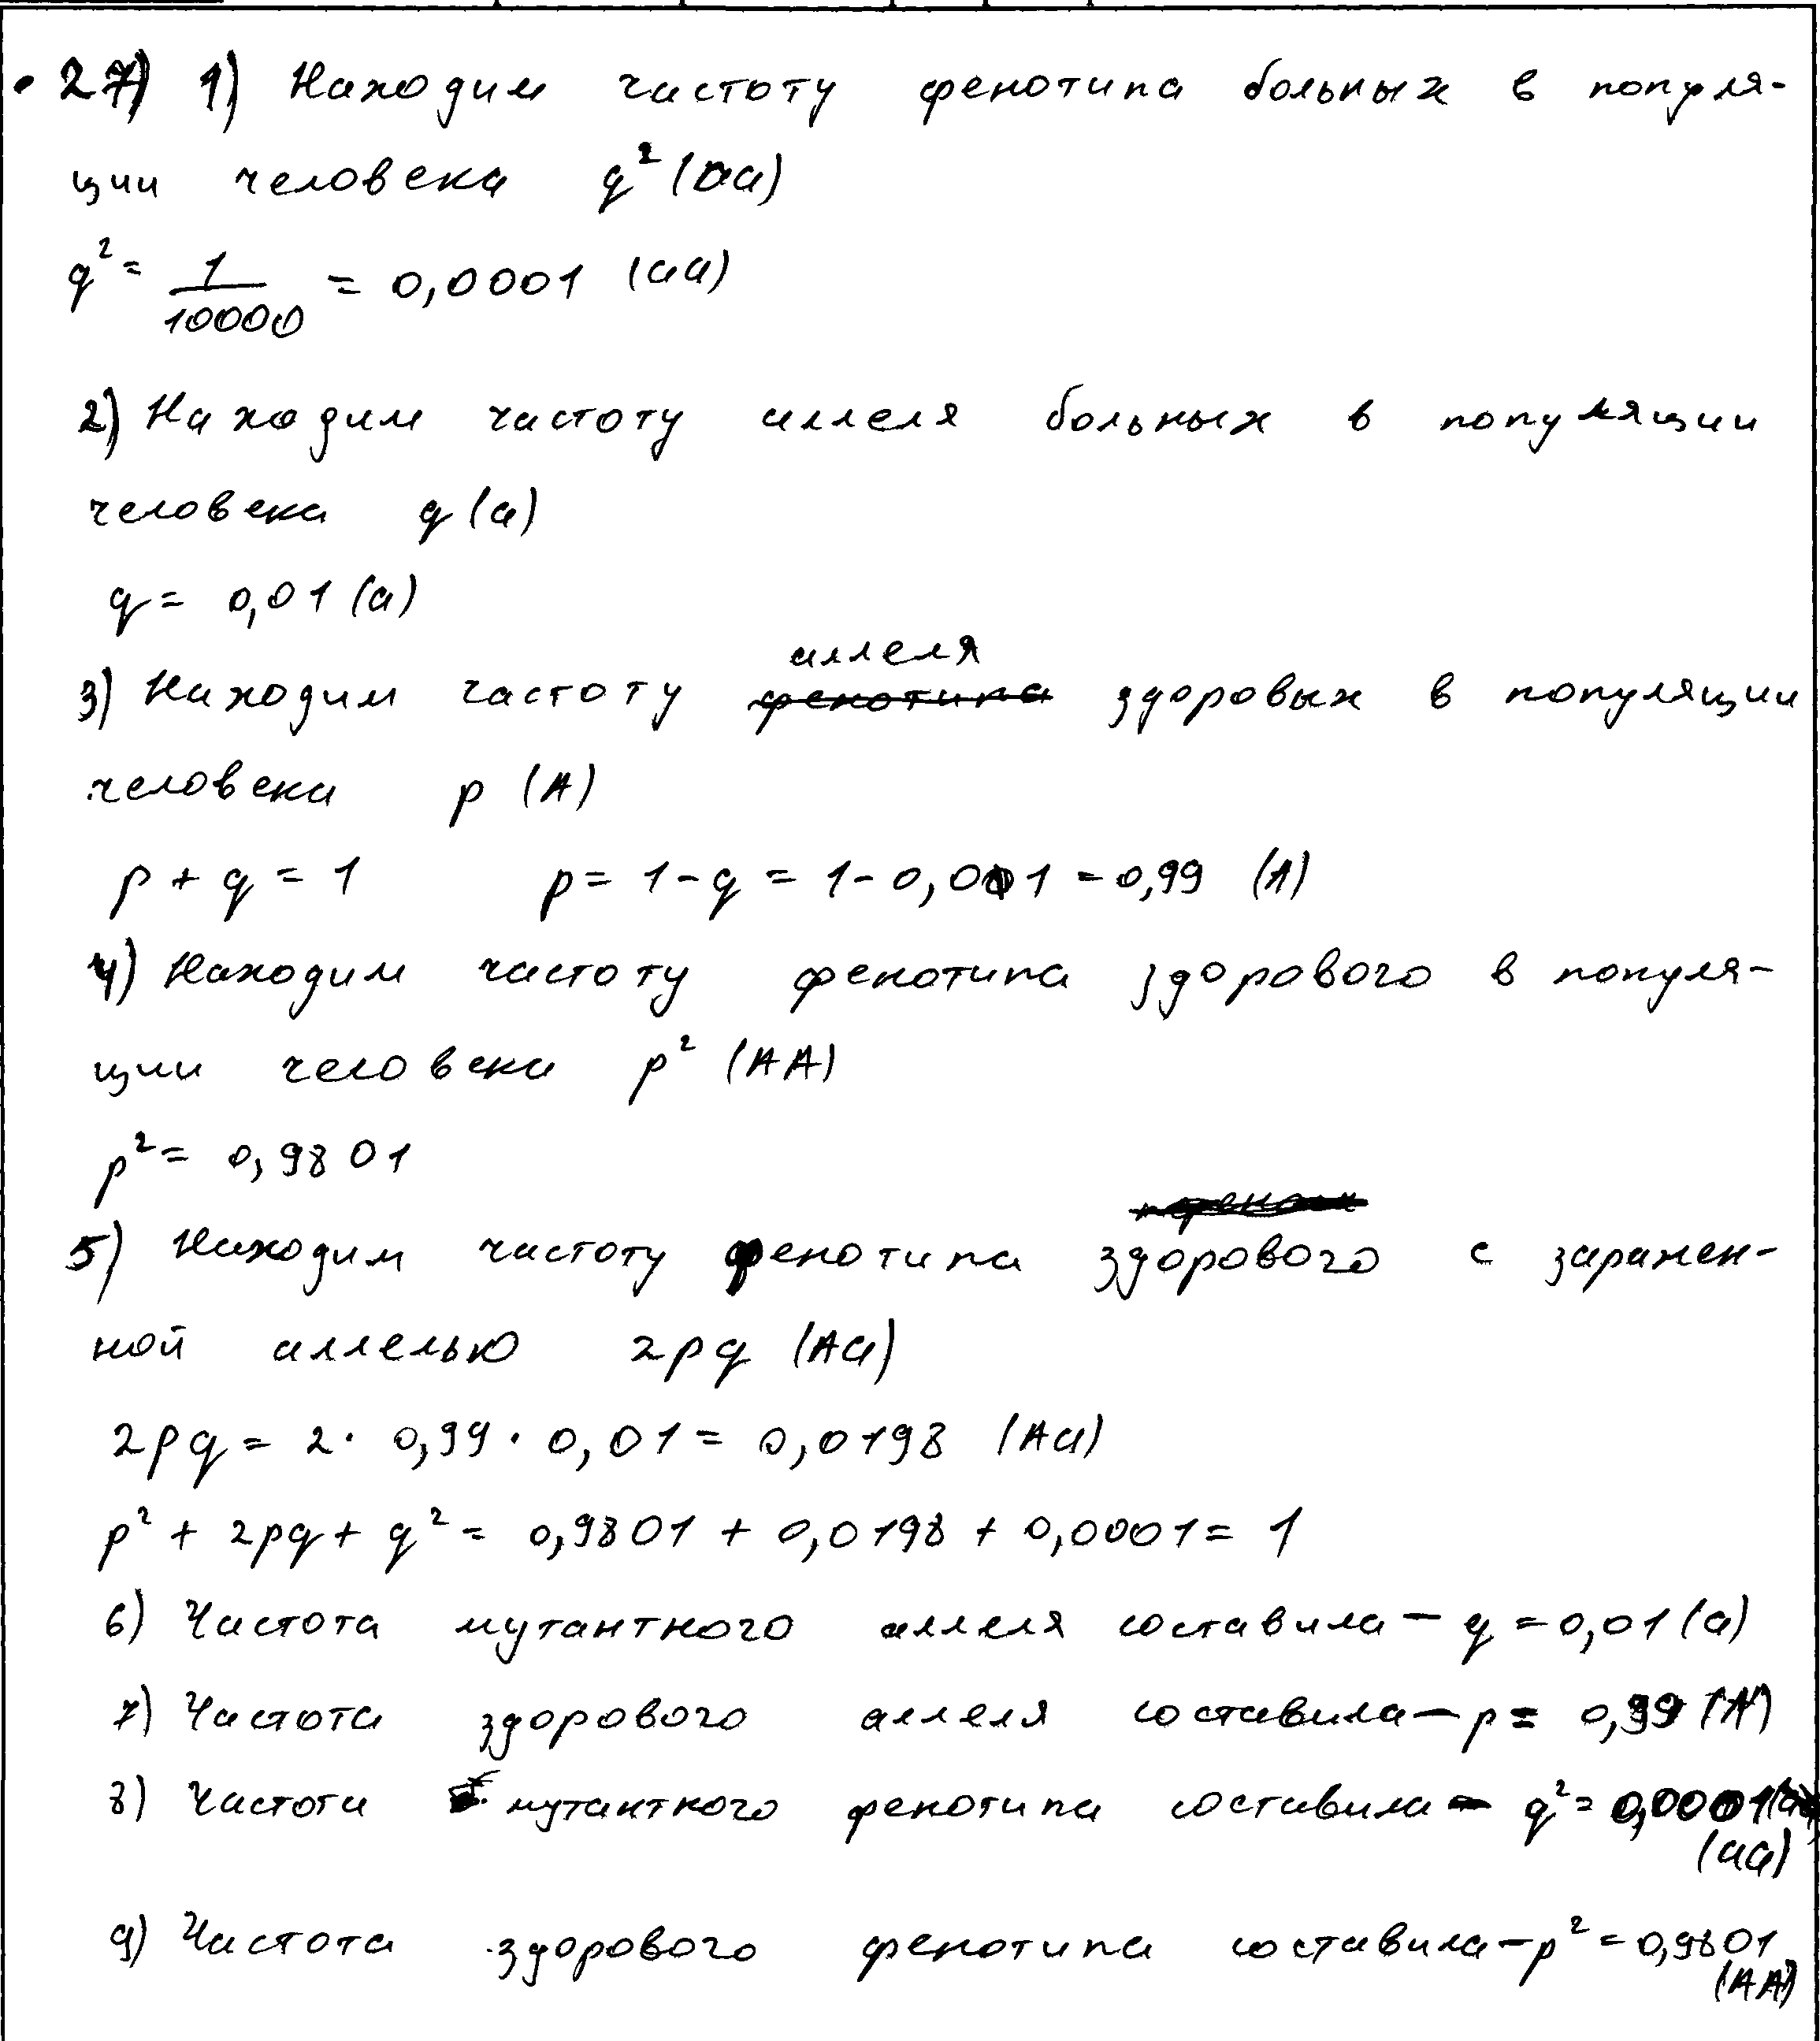 • 27) 1) Находим частоту фенотипа больных в популя-
ции человека q² (aa)
q² = 1/10000 = 0,0001 (aa)
2) Находим частоту аллеля больных в популяции
человека q (a)
q = 0,01 (a)
аллеля
3) Находим частоту фенотипа здоровых в популяции
человека p (A)
p + q = 1 p = 1 - q = 1 - 0,01 = 0,99 (A)
4) Находим частоту фенотипа здорового в популя-
ции человека p² (AA)
p² = 0,9801
5) Находим частоту фенотипа здорового с заражен-
ной аллелью 2pq (Aa)
2pq = 2 · 0,99 · 0,01 = 0,0198 (Aa)
p² + 2pq + q² = 0,9801 + 0,0198 + 0,0001 = 1
6) Частота мутантного аллеля составила - q = 0,01 (a)
7) Частота здорового аллеля составила - p = 0,99 (A)
8) Частота мутантного фенотипа составила - q² = 0,0001
(aa)
9) Частота здорового фенотипа составила - p² = 0,9801
(AA)